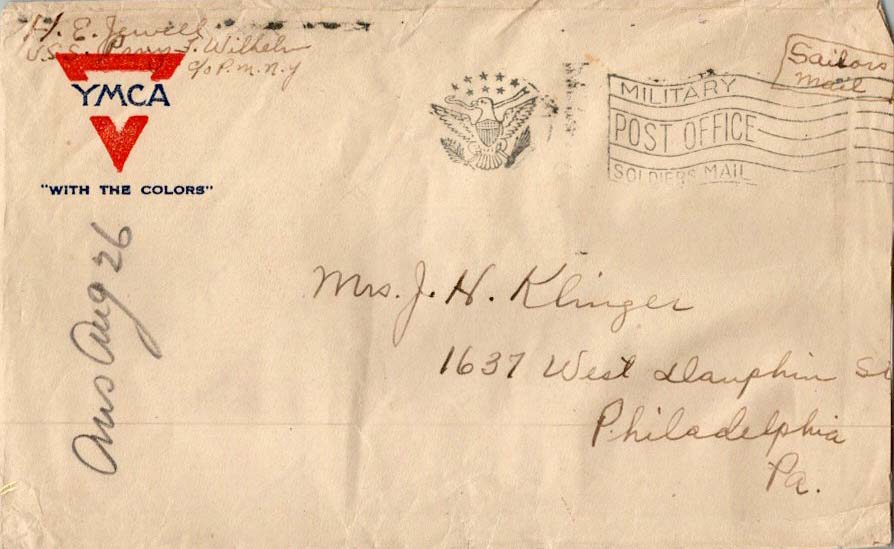 H. E. Jewell
U.S.S. Prinz F. Wilhelm
c/o P.m. n.y
Sailors
Mail
YMCA
"WITH THE COLORS"
MILITARY
POST OFFICE
SOLDIERS MAIL
Ans Aug 26
Mrs. J. H. Klinger
1637 West Dauphin St
Philadelphia
Pa.